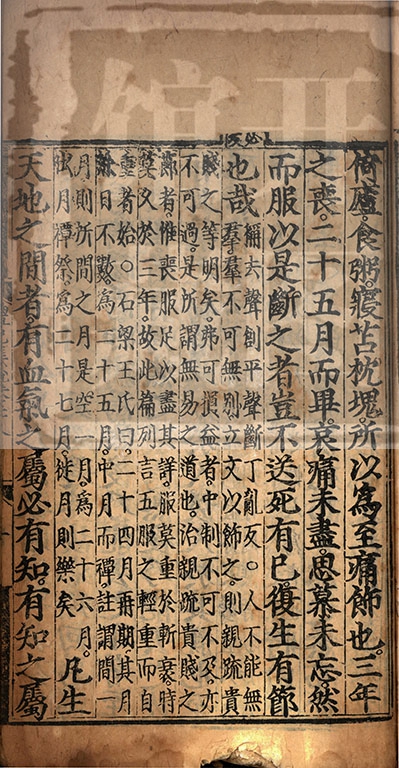 倚廬。食粥。寢苫枕塊。所以為至痛飾也。三年
之喪。二十五月而畢。哀痛未盡。思慕未忘。然
而服以是斷之者。豈不送死有已。復生有節
也哉
稱去聲創平聲斷丁亂反。○人不能無
羣羣不可無別立文以飾之。則親疏貴
賤之等明矣。弗可損益者。中制不可不及。亦
不可過。是所謂無易之道也。治親疏貴賤之
節者。惟喪服足以盡其詳。服莫重於斬衰。時
莫久於三年。故此篇列言五服之輕重而自
重者始。○石梁王氏曰。二十四月再期其月
餘日不數。為二十五月。中月而禫註謂間一
月則所間之月是空一月。為二十六月。
出月禫祭。為二十七月。徙月則樂矣
凡生
天地之間者有血氣之屬必有知。有知之屬